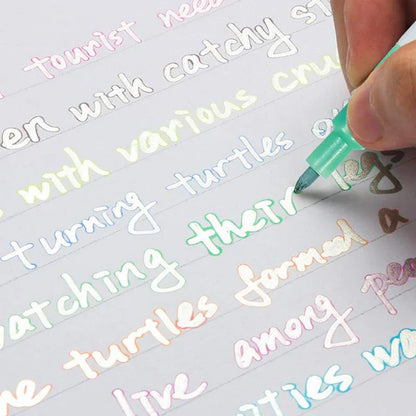 tourist need
en with catchy s
with various cru
turning turtles
watching their legs
turtles formed a
live among pe
ties wa